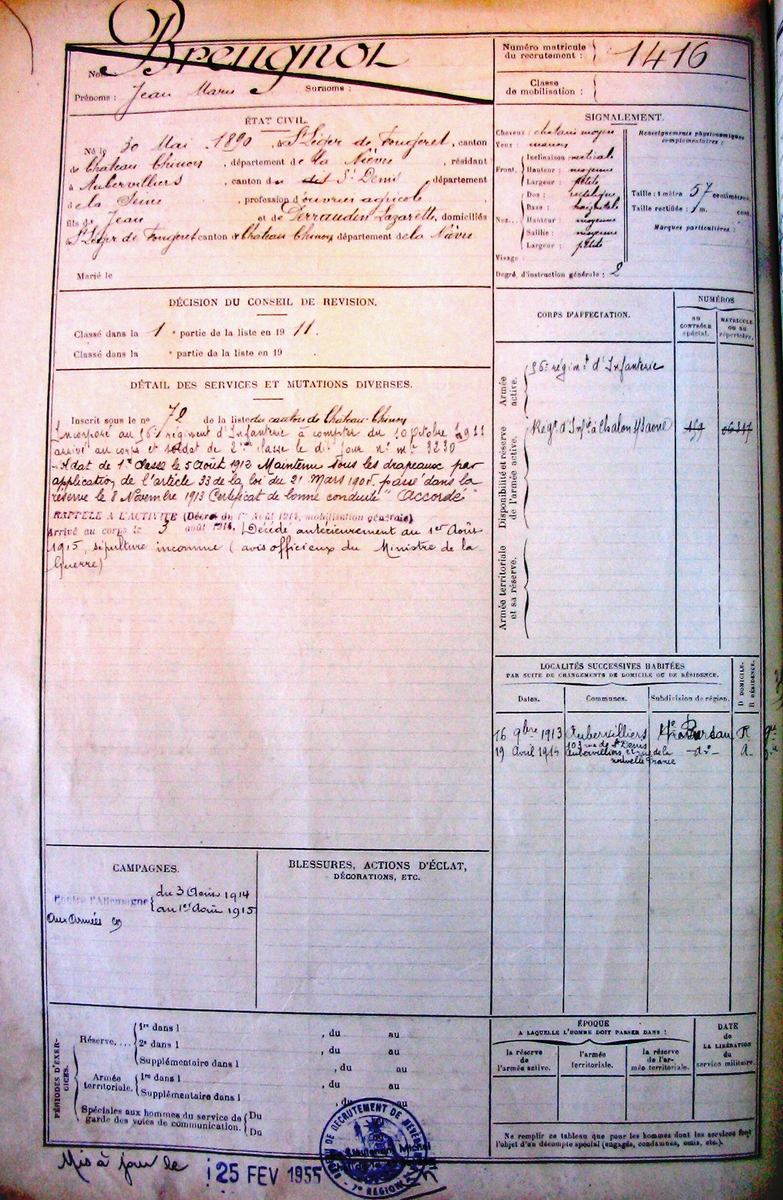 Breugnot
Nom
Prénoms : Jean Marie Surnoms :
Numéro matricule
du recrutement : 1416
Classe
de mobilisation :
ÉTAT CIVIL.
Né le 30 Mai 1890, à St Léger de Fougeret, canton
de Château Chinon, département de la Nièvre, résidant
à Aubervilliers, canton de St Denis, département
de la Seine, profession d'ouvrier agricole
fils de Jean et de Perraudin Lazarette, domiciliés
St Léger de Fougeret canton de Château Chinon département de la Nièvre
Marié le
SIGNALEMENT.
Cheveux : chatain moyen
Yeux : marron
Front. Inclinaison verticale
Hauteur : moyenne
Largeur : petite
Nez... Dos : rectiligne
Base : horizontale
Hauteur moyenne
Saillie : moyenne
Largeur : petite
Visage :
Degré d'instruction générale : 2
Renseignements physionomiques
complémentaires :
Taille : 1 mètre 57 centimètres.
Taille rectifiée : 1 m. cent.
Marques particulières :
DÉCISION DU CONSEIL DE REVISION.
Classé dans la 1e partie de la liste en 1911.
Classé dans la e partie de la liste en 19 .
DÉTAIL DES SERVICES ET MUTATIONS DIVERSES.
Inscrit sous le no 70 de la liste du canton de Château-Chinon
Incorporé au 56e régiment d'Infanterie à compter du 10 Octobre 1911
arrivé au corps et soldat de 2ème classe le dit jour no mle 3230
Soldat de 1e classe le 5 Août 1913 Maintenu sous les drapeaux par
application de l'article 33 de la loi du 21 Mars 1905, passé dans la
réserve le 8 Novembre 1913 Certificat de bonne conduite "Accordé"
RAPPELÉ A L'ACTIVITÉ (Décret du 1er Août 1914, mobilisation générale)
Arrivé au corps le 3 août 1914. Décédé antérieurement au 1er Août
1915, sépulture inconnue (avis officieux du Ministre de la
Guerre)
CORPS D'AFFECTATION.
NUMÉROS
AU
CONTRÔLE
spécial.
MATRICULE
OU AU
répertoire.
Armée
active.
56e régimt d'Infanterie
Disponibilité et réserve
de l'armée active.
Régt d'Infie à Chalon s/Saone
Armée territoriale
et sa réserve.
LOCALITÉS SUCCESSIVES HABITÉES
PAR SUITE DE CHANGEMENTS DE DOMICILE OU DE RÉSIDENCE.
Dates.
Communes.
Subdivision de région.
D. DOMICILE.
R. RÉSIDENCE.
16 9bre 1913 Aubervilliers R
103 rue de St Denis
19 Avril 1914 Aubervilliers, rue de la -do-
nouvelle France
CAMPAGNES.
Contre l'Allemagne du 3 Août 1914
au 1er Août 1915
Aux Armées
BLESSURES, ACTIONS D'ÉCLAT,
DÉCORATIONS, ETC.
PÉRIODES D'EXERCICES.
Réserve....
1re dans l , du au
2e dans l , du au
Supplémentaire dans l , du au
Armée
territoriale.
1re dans l , du au
Supplémentaire dans l , du au
Spéciales aux hommes du service de
garde des voies de communication.
Du
Du
ÉPOQUE
A LAQUELLE L'HOMME DOIT PASSER DANS :
la réserve
de l'armée active.
l'armée
territoriale.
la réserve
de l'armée territoriale.
DATE
de
LA LIBÉRATION
du
service militaire.
Ne remplir ce tableau que pour les hommes dont les services font
l'objet d'un décompte spécial (engagés, condamnés, omis, etc.).
Mis à jour le 25 FEV 1955
DE RECRUTEMENT DE NEVERS
Lieutenant Michel
7e RÉGION